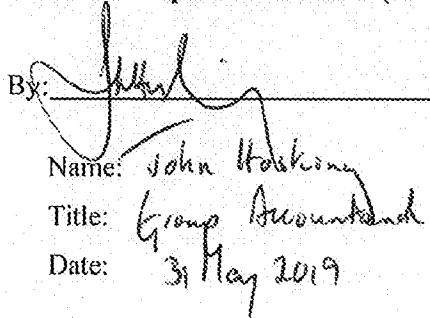 By:
Name: John
Title: Group Accountant
Date: 31 May 2019